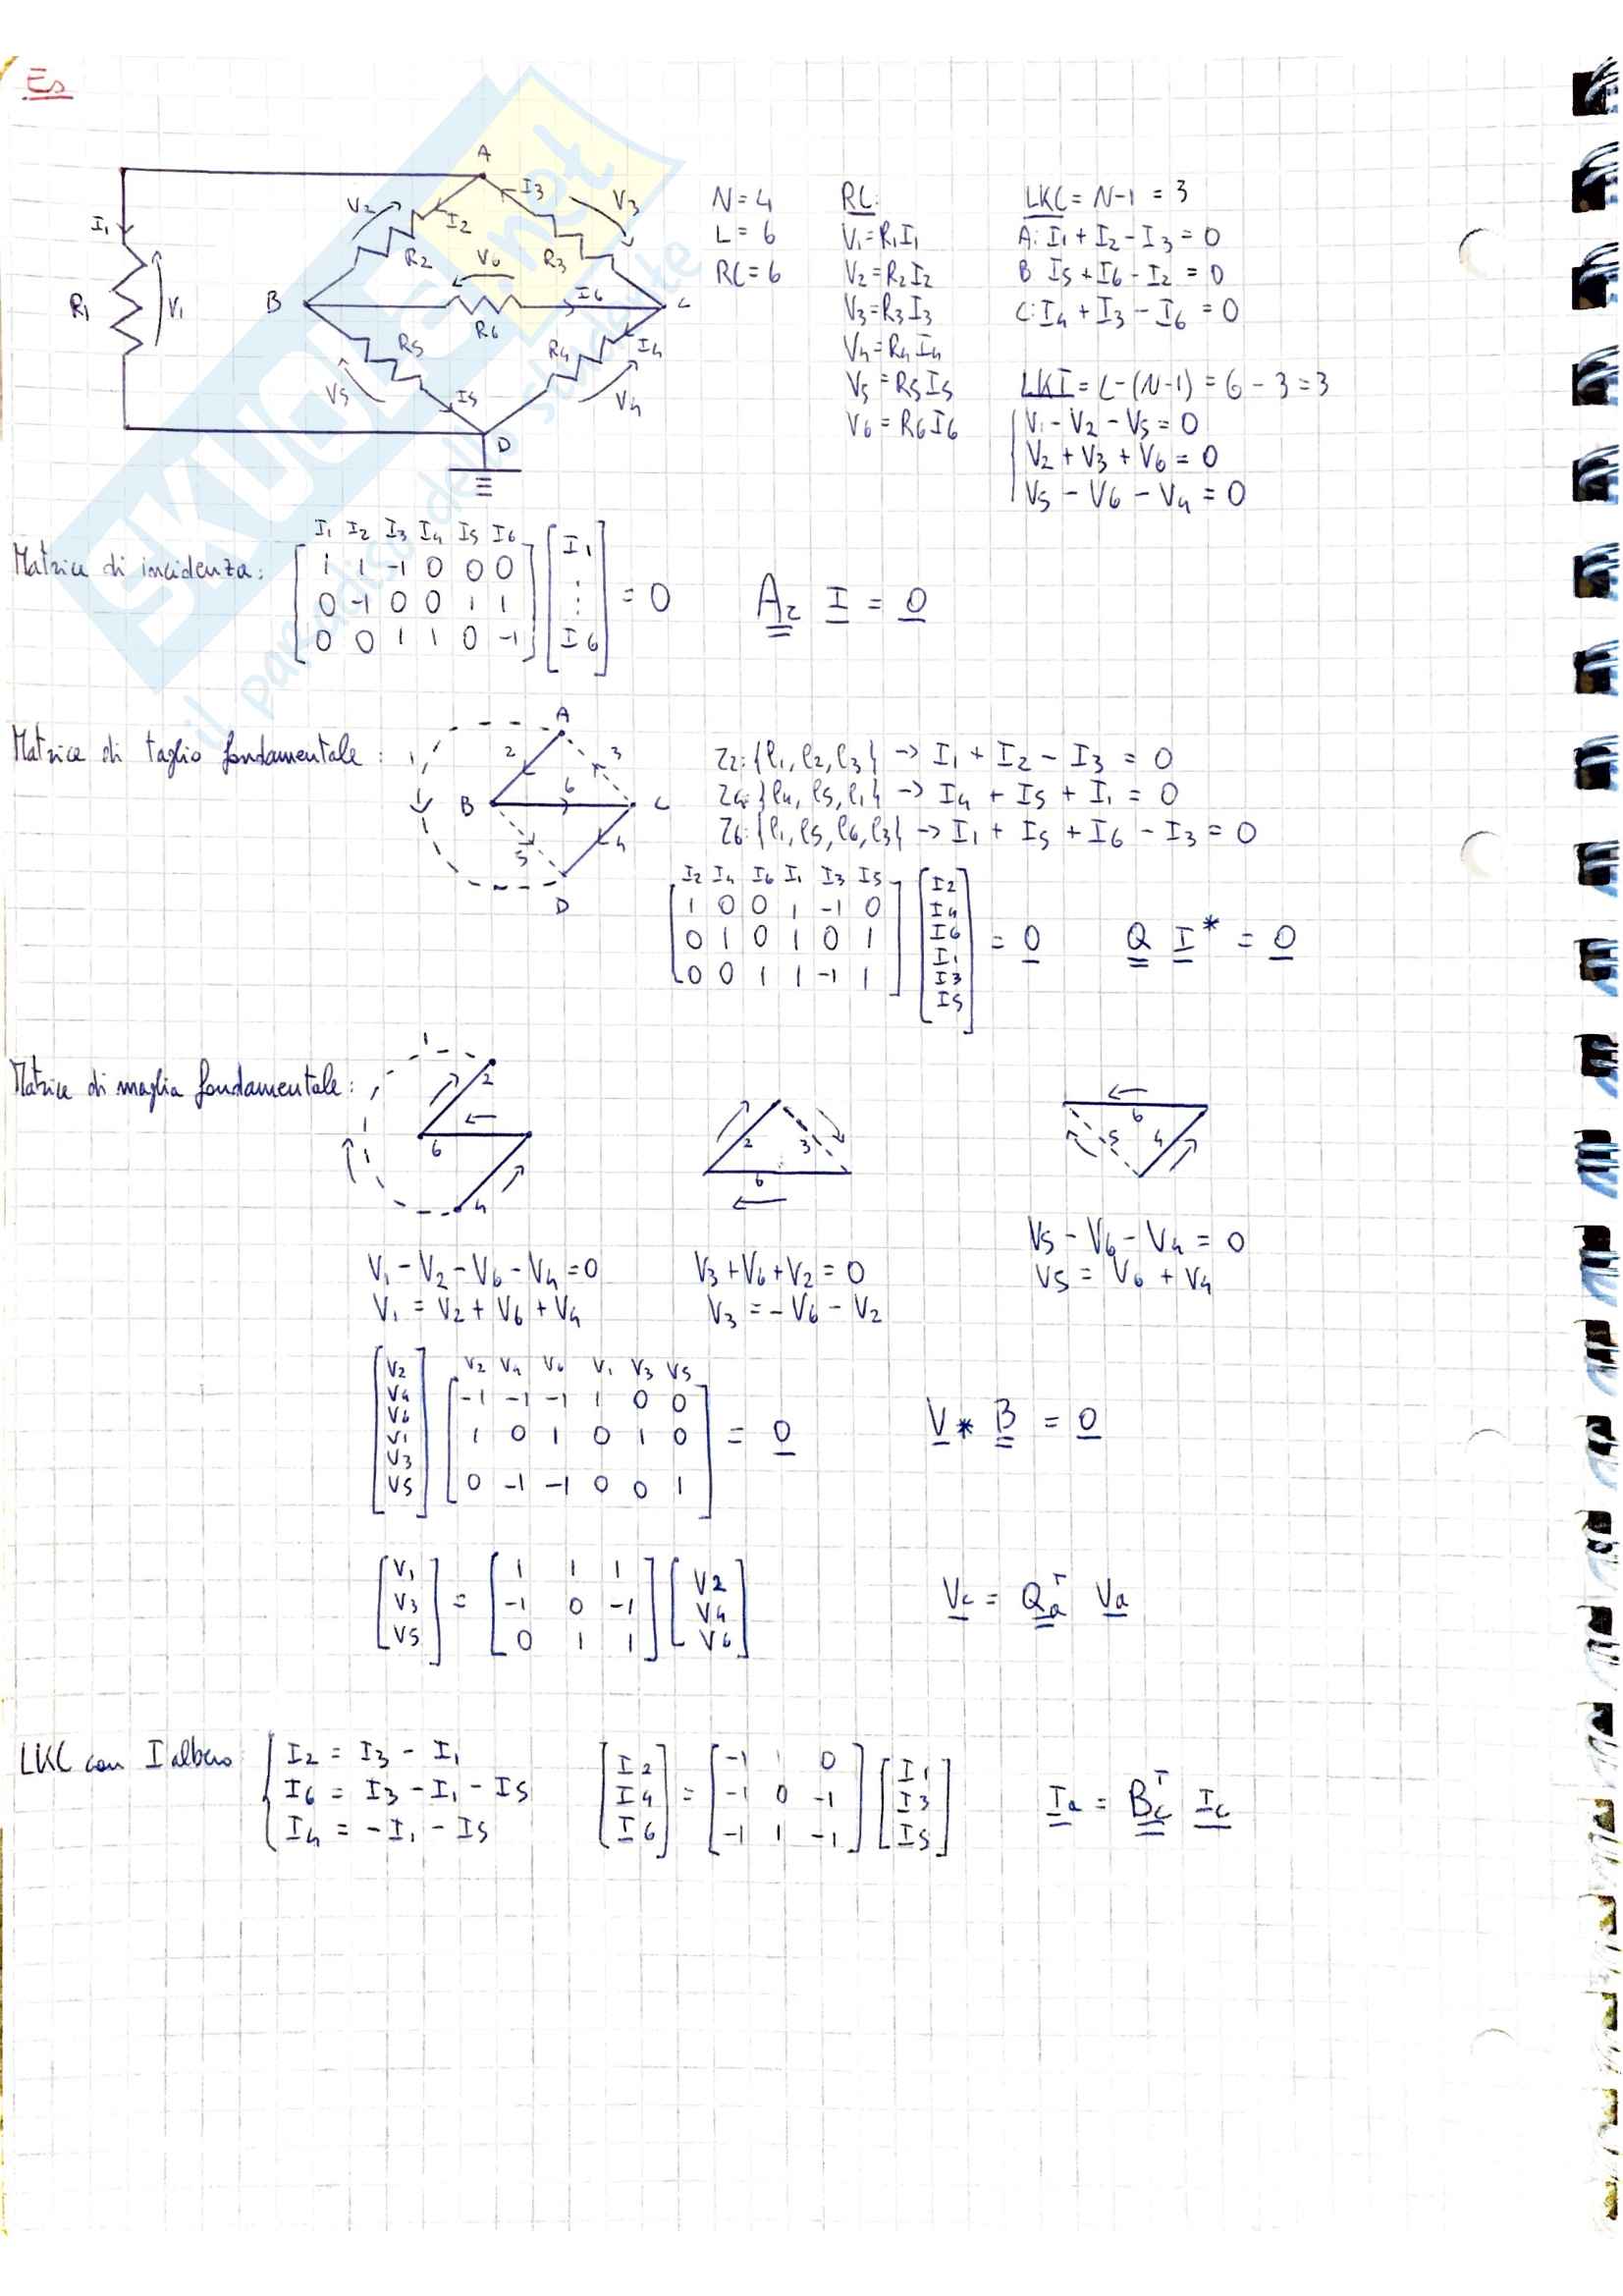 Es
A
I1
R1
V1
V2
I2
R2
I3
V3
R3
V6
I6
R6
B
C
R5
V5
I5
R4
I4
V4
D
N=4
L=6
RC=6
RC:
V1=R1I1
V2=R2I2
V3=R3I3
V4=R4I4
V5=R5I5
V6=R6I6
LKC=N-1=3
A: I1+I2-I3=0
B I5+I6-I2=0
C: I4+I3-I6=0
LKT=L-(N-1)=6-3=3
V1-V2-V5=0
V2+V3+V6=0
V5-V6-V4=0
SKUOLA.net
il paradiso dello studente
Matrice di incidenza:
I1 I2 I3 I4 I5 I6
1 1 -1 0 0 0
0 -1 0 0 1 1
0 0 1 1 0 -1
I1
⋮
I6
= 0
A2 I = 0
Matrice di taglio fondamentale:
1
A
2
3
B
6
C
5
4
D
Z2:{l1,l2,l3} -> I1+I2-I3=0
Z4:{l4,l5,l1} -> I4+I5+I1=0
Z6:{l1,l5,l6,l3} -> I1+I5+I6-I3=0
I2 I4 I6 I1 I3 I5
1 0 0 1 -1 0
0 1 0 1 0 1
0 0 1 1 -1 1
I2
I4
I6
I1
I3
I5
= 0
Q I* = 0
Matrice di maglia fondamentale:
1
2
6
4
2
3
6
6
5
4
V1-V2-V6-V4=0
V1=V2+V6+V4
V3+V6+V2=0
V3=-V6-V2
V5-V6-V4=0
V5=V6+V4
V2
V4
V6
V1
V3
V5
V2 V4 V6 V1 V3 V5
-1 -1 -1 1 0 0
1 0 1 0 1 0
0 -1 -1 0 0 1
= 0
V* B = 0
V1
V3
V5
=
1 1 1
-1 0 -1
0 1 1
V2
V4
V6
Vc = Qa^T Va
LKC con I albero
I2=I3-I1
I6=I3-I1-I5
I4=-I1-I5
I2
I4
I6
=
-1 1 0
-1 0 -1
-1 1 -1
I1
I3
I5
Ia = Bc^T Ic